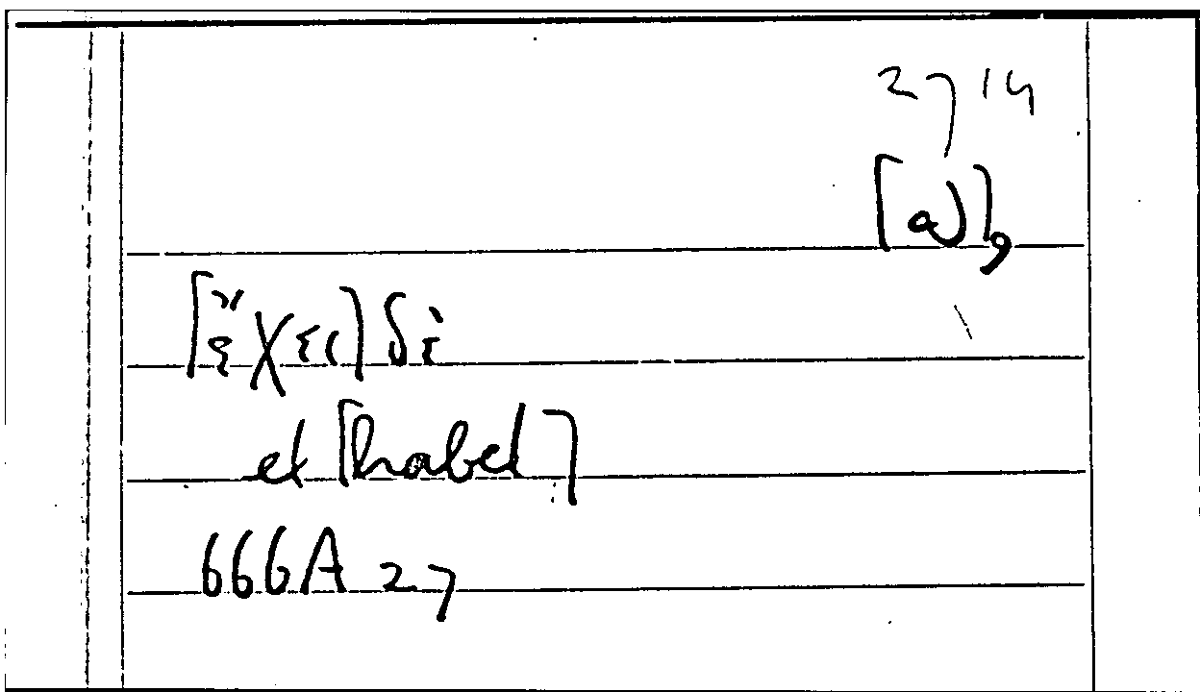 2714
[a],
[ἔχει] δὲ
et [habet]
666A 27